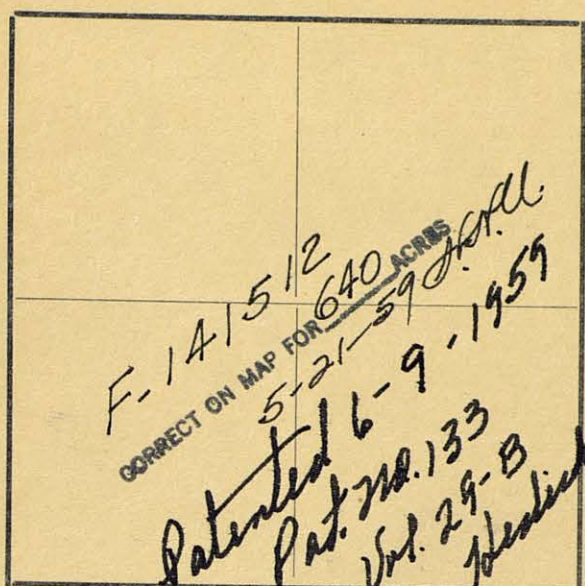 F-141512
CORRECT ON MAP FOR 640 ACRES
5-21-59
Patented 6-9-1959
Pat. No. 133
Vol. 29-B